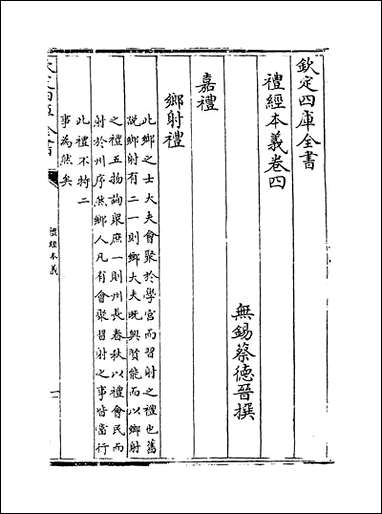 欽定四庫全書
禮經本義卷四
無錫蔡德晉撰
嘉禮
鄉射禮
此鄉之士大夫會聚於學宮而習射之禮也舊
說鄉射有二一則鄉大夫既興賢能而以鄉射
之禮五物詢衆庶一則州長春秋以禮會民而
射於州序然鄉人凡有會聚習射之事皆當行
此禮不特二
事為然矣
禮經本義
一